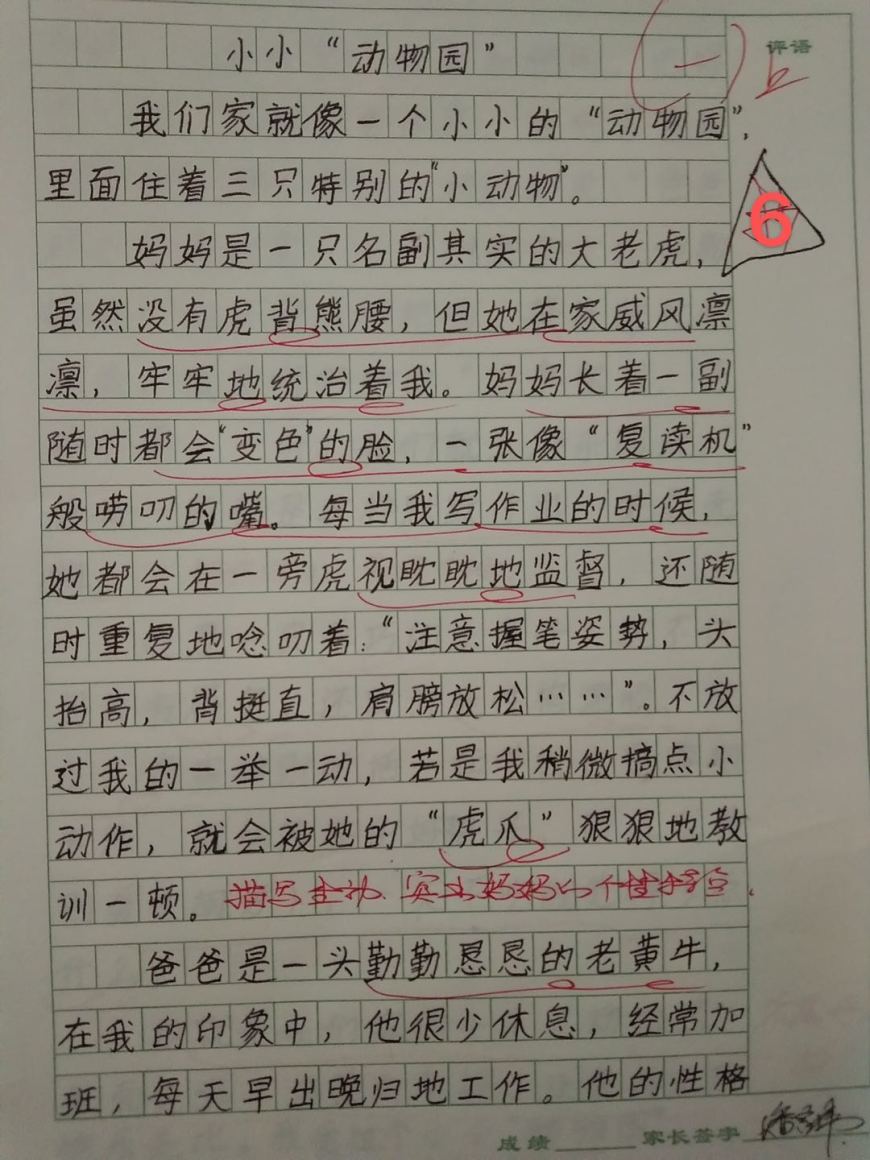 小小“动物园”
(一)
评语
我们家就像一个小小的“动物园”，
里面住着三只特别的“小动物”。
6
妈妈是一只名副其实的大老虎，
虽然没有虎背熊腰，但她在家威风凛
凛，牢牢地统治着我。妈妈长着一副
随时都会“变色”的脸，一张像“复读机”
般唠叨的嘴。每当我写作业的时候，
她都会在一旁虎视眈眈地监督，还随
时重复地唸叨着：“注意握笔姿势，头
抬高，背挺直，肩膀放松……”。不放
过我的一举一动，若是我稍微搞点小
动作，就会被她的“虎爪”狠狠地教
训一顿。
描写生动，突出妈妈的个性特点。
爸爸是一头勤勤恳恳的老黄牛，
在我的印象中，他很少休息，经常加
班，每天早出晚归地工作。他的性格
成绩 家长签字